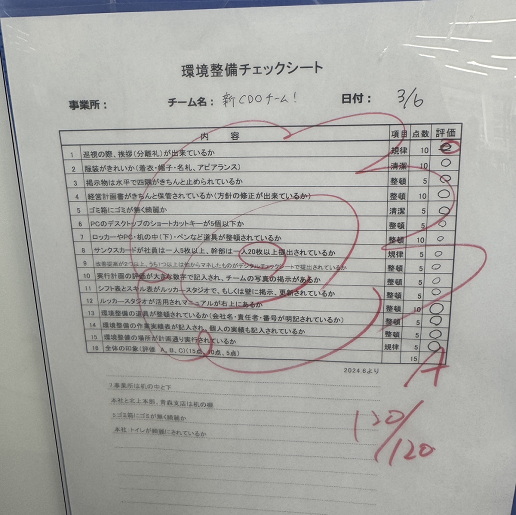 環境整備チェックシート
事業所: チーム名: 新CDOチーム! 日付: 3/6
内 容 項目 点数 評価
1 巡視の際、挨拶(分離礼)が出来ているか 規律 10 ○
2 服装がきれいか(着衣・帽子・名札、アピアランス) 清潔 10 ○
3 掲示物は水平で四隅がきちんと止められているか 整頓 5 ○
4 経営計画書がきちんと保管されているか(方針の修正が出来ているか) 整頓 10 ○
5 ゴミ箱にゴミが無く綺麗か 清潔 5 ○
6 PCのデスクトップのショートカットキーが5個以下か 整頓 5 ○
7 ロッカーやPC・机の中(下)・ペンなど道具が整頓されているか 整頓 10 ○
8 サンクスカードが社員は一人5枚以上、幹部は一人20枚以上提出されているか 規律 5 ○
9 整頓 5 ○
10 実行計画の評価が大きな数字で記入され、チームの写真の掲示があるか 整頓 5 ○
11 シフト表とスキル表がルッカースタジオで、もしくは壁に掲示、更新されているか 整頓 5 ○
12 ルッカースタジオが活用されマニュアルが右上にあるか 整頓 5 ○
13 環境整備の道具が整頓されているか(会社名・責任者・番号が明記されているか) 整頓 10 ○
14 環境整備の作業実績表が記入され、個人の実績も記入されているか 整頓 5 ○
15 環境整備の場所が計画通り実行されているか 規律 5 ○
16 全体の印象(評価 A, B, C)(15点、10点、5点) 15 A
2024.6より
1事業所は机の中と下
本社と北上本部、青森支店は机の棚
5ゴミ箱にゴミが無く綺麗か
本社トイレが綺麗にされているか
120/120